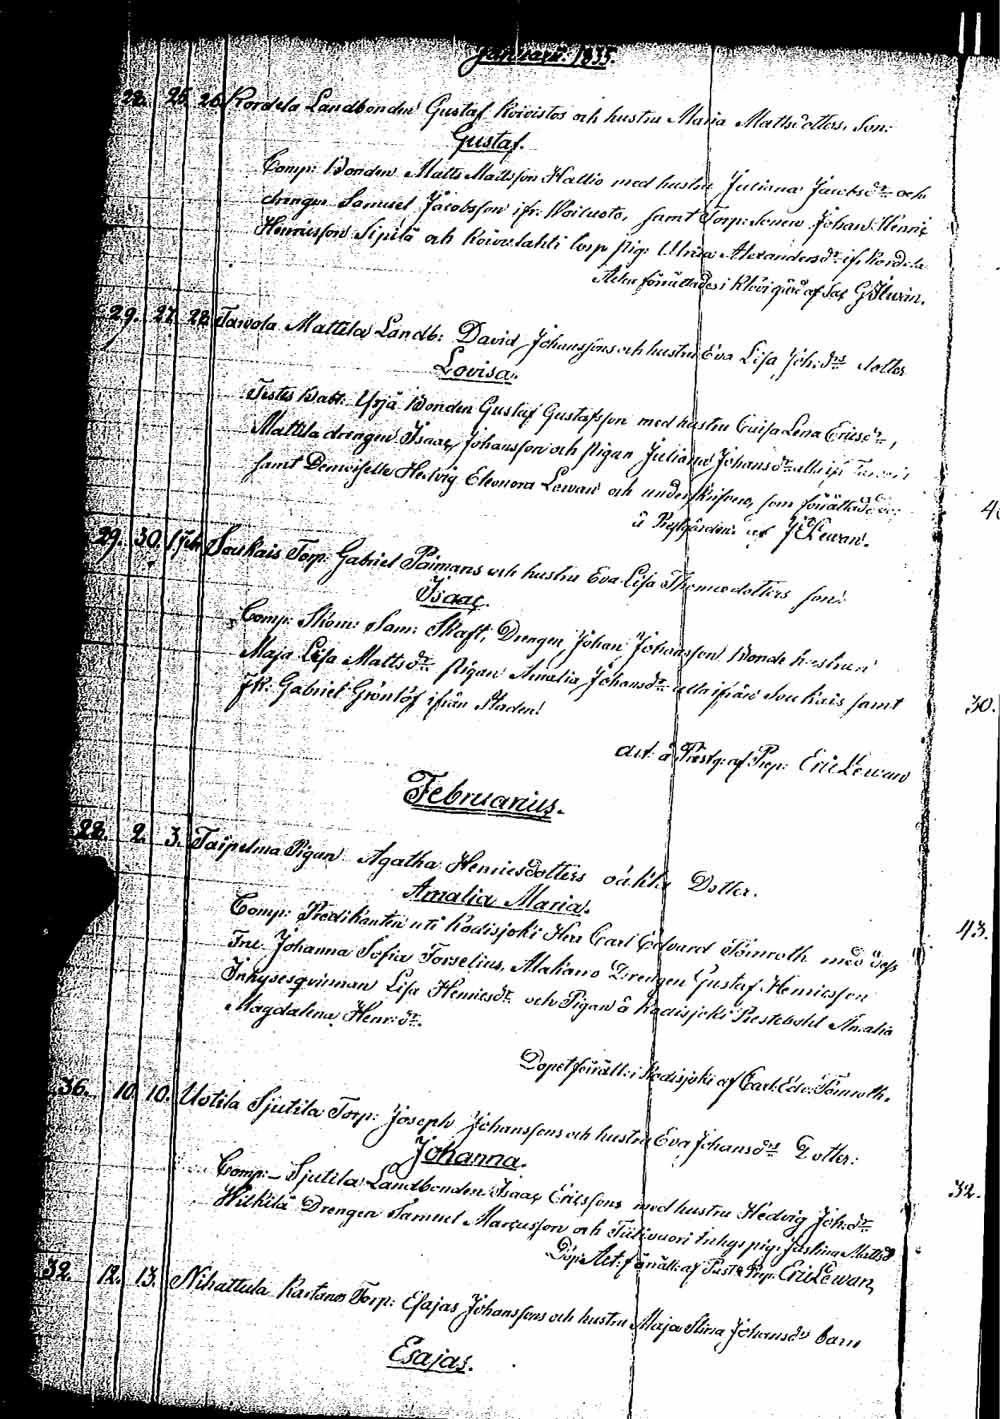 11
Januari. 1835.
28. 25. 26. Kordela Landbonden Gustaf Koivistos och hustru Maria Mattsdotters, Son:
Gustaf.
Comp: Bonden Matts Mattsson Hallio med hustru Juliana Jacobsdr och
drengen Samuel Jacobsson ifr. Woiluoto, samt Torp: Sonen Johan Henric
Henricsson Sipilä och Koivulahti Torp pig. Ulrica Alexandersdr if. Kordela
Acten förrättades i Klövgård af Sac
29. 27. 28. Tarvola Mattila Landb: David Johanssons och hustru Eva Lisa Joh:drs dotter
Lovisa.
Testes Yrjä Bonden Gustaf Gustafsson med hustru Lena Ericsdr,
Mattila drengen Isaac Johansson och Pigan Juliana Johansdr alla if.
samt Demoiselle Hedvig Eleonora Lewan och underskrifven, som förättade
å Prestgården af J Lewan.
29. 30. 1 feb Soukais Torp: Gabriel Päimans och hustru Eva Lisa Thomasdotters son:
Isaac.
Comp: Skom: Sam: Skaft, Drengen Johan Johansson Bonde hustrun
Maja Lisa Mattsdr Pigan Amalia Johansdr alla ifrån Soukais samt
Gabriel Grönlöf ifrån Staden.
Act. å Prestg: af Prep: Eric Lewan
Februarius.
28. 2. 3. Taipelma Pigan Agatha Henricsdotters oäkta Dotter.
Amalia Maria.
Comp: Predikanten uti Kodisjoki Herr Carl Edvard Tömroth med dess
Fru Johanna Sofia Forselius, Drengen Gustaf Henricsson
Inhysesqvinnan Lisa Henricsdr och Pigan å Kodisjoki Prestebohl Amalia
Magdalena Henr:dr.
Dopet förrätt: i Kodisjoki af Carl Edv: Tömroth.
36. 10. 10. Uotila Sjutila Torp: Joseph Johanssons och hustru Eva Johansdrs Dotter:
Johanna.
Comp:- Sjutila Landbonden Isaac Ericssons med hustru Hedvig Joh:dr
Drengen Samuel Marcusson och Tiilivuori Inhys pig. Justina Mattsd
Döp Act: förrätt: af Past & Prep: Eric Lewan,
32. 12. 13. Nihattula Kartanos Torp: Esajas Johanssons och hustru Maja Stina Johansdrs barn
Esajas.
30.
43.
32.